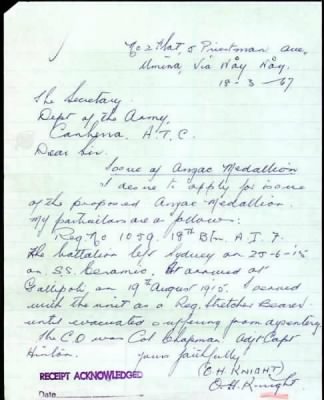 No 2 Flat, 5 Priestman Ave,
Umina, Via Woy Woy.
18-3-67
The Secretary.
Dept of the Army,
Canberra. A.T.C.
Dear Sir.
Issue of Anzac Medallion
I desire to apply for issue
of the proposed Anzac Medallion.
My particulars are as follows:
Reg. No 1059. 18th Btn. A.I.F.
The battalion left Sydney on 25-6-15
on S.S. Ceramic. & arrived at
Gallipoli on 19th August 1915. served
with the unit as a Reg. stretcher bearer
until evacuated suffering from dysentery
The C.O was Col Chapman Adjt Capt
Hinton.
Yours faithfully
(O.H. KNIGHT)
O.H. Knight
RECEIPT ACKNOWLEDGED
Date